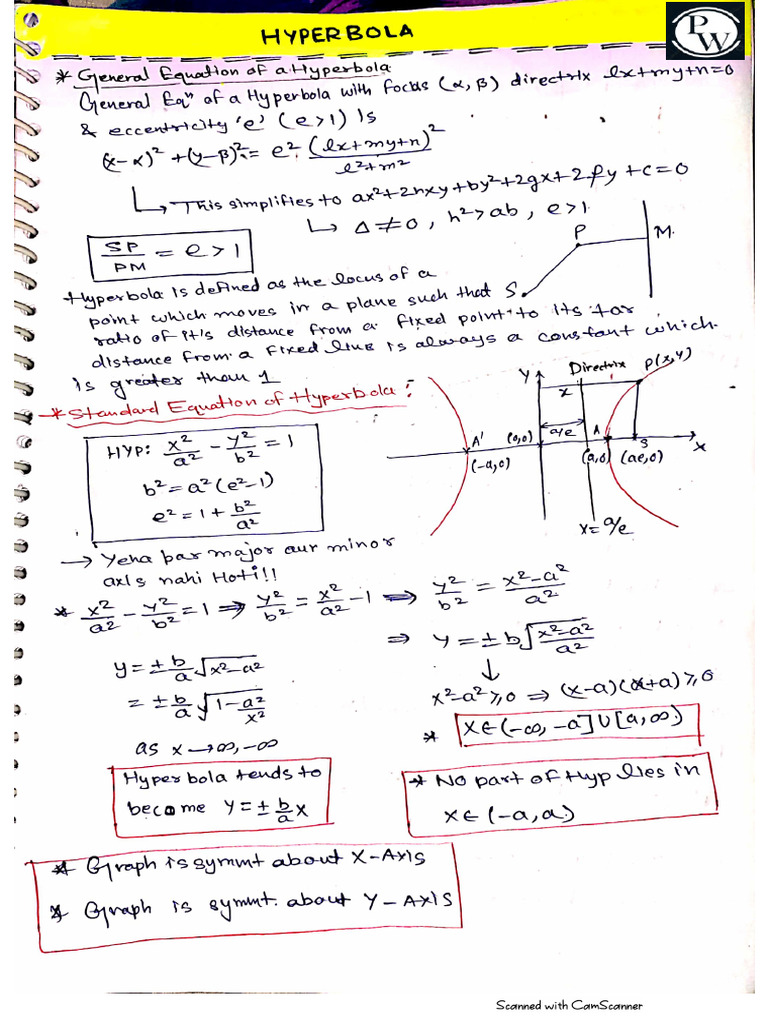 HYPERBOLA
PW
* General Equation of a Hyperbola
General Eqⁿ of a Hyperbola with focus (α, β) directrix lx+my+n=0
& eccentricity 'e' (e>1) Is
(x-α)² + (y-β)² = e² (lx+my+n)² / l²+m²
↳ This simplifies to ax²+2hxy+by²+2gx+2fy+c=0
↳ Δ≠0, h²>ab, e>1
SP/PM = e > 1
P M
S
Hyperbola Is defined as the locus of a
point which moves in a plane such that
ratio of it's distance from a fixed point to its for
distance from a fixed line is always a constant which
Is greater than 1
* Standard Equation of Hyperbola:
HYP: x²/a² - y²/b² = 1
b² = a²(e²-1)
e² = 1 + b²/a²
Y Directrix P(x,y)
x
A' (0,0) a/e A S
(-a,0) (a,0) (ae,0) X
x = a/e
→ Yeha par major aur minor
axis nahi Hoti!!
* x²/a² - y²/b² = 1 ⇒ y²/b² = x²/a² - 1 ⇒ y²/b² = x²-a²/a²
⇒ y = ± b√(x²-a²/a²)
y = ± b/a √(x²-a²)
↓
x²-a² ≥ 0 ⇒ (x-a)(x+a) ≥ 0
= ± b/a √(1-a²/x²)
* x ∈ (-∞, -a] ∪ [a, ∞)
as x → ∞, -∞
Hyperbola tends to
become y = ± b/a x
* No part of Hyp lies in
x ∈ (-a, a)
* Graph is symmt about X-Axis
* Graph is symmt. about Y-Axis
Scanned with CamScanner